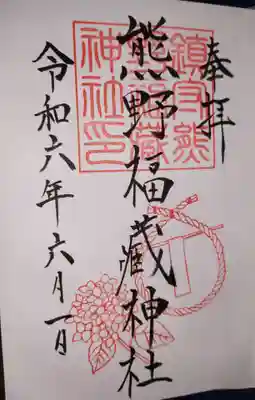 奉拝
熊野福藏神社
令和六年六月一日
鎮守熊
神社印